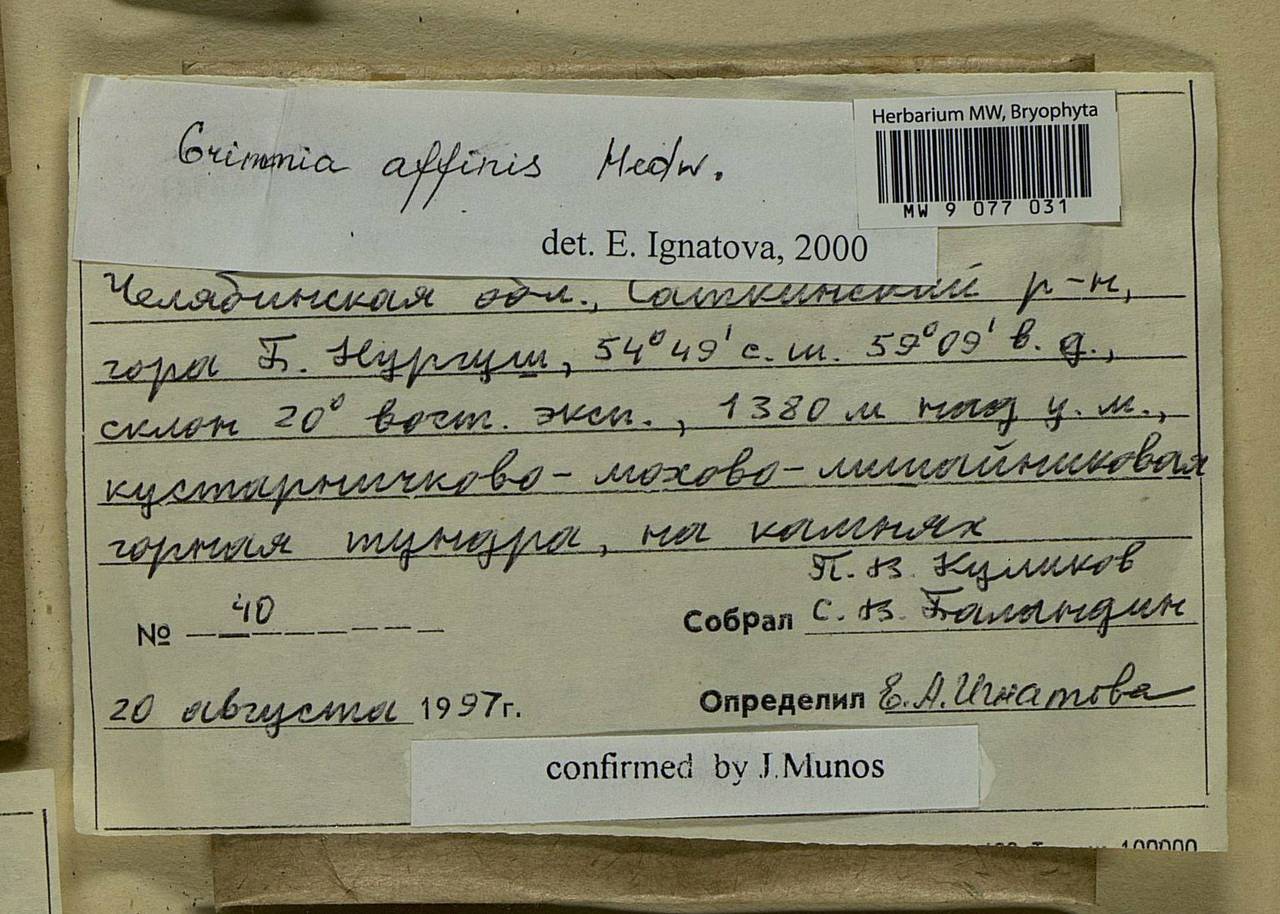 Herbarium MW, Bryophyta
MW 9 077 031
Grimmia affinis Hedw.
det. E. Ignatova, 2000
Челябинская обл., Саткинский р-н,
гора Б. Нургуш, 54°49' с. ш. 59°09' в. д.,
склон 20° вост. эксп., 1380 м над у. м.,
кустарничково-мохово-лишайниковая
горная тундра, на камнях
П. В. Куликов
№ 40
Собрал С. В. Баландин
20 августа 1997г.
Определил Е. А. Игнатова
confirmed by J.Munos
100000